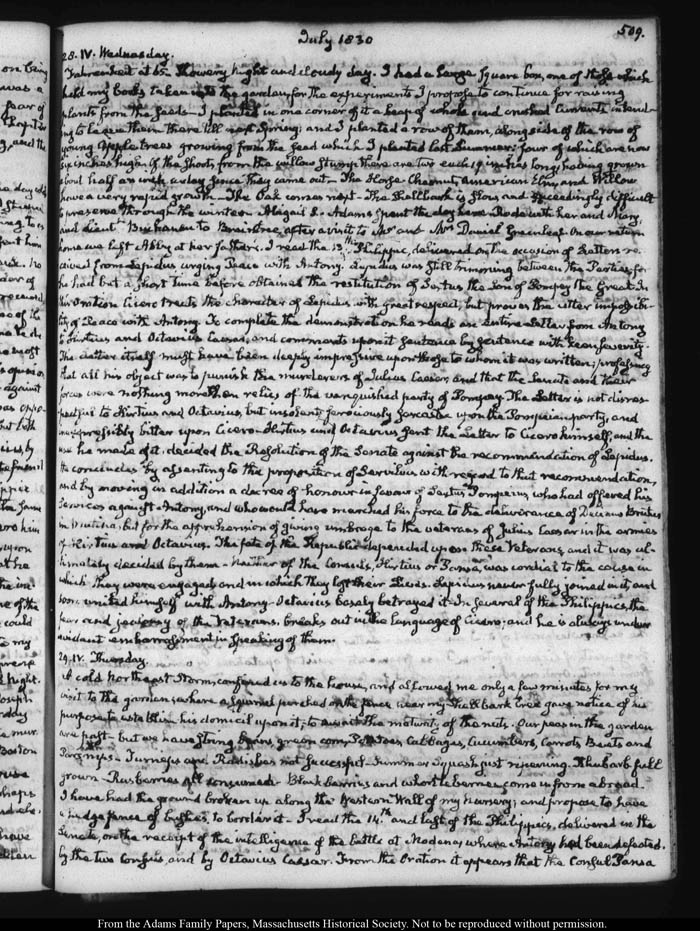 July 1830
509.
28. IV. Wednesday.
Fahrenheit at 65. Showery night and cloudy day. I had a large square box, one of those which
held my books taken into the garden, for the experiments I propose to continue for raising
plants from the seeds. I planted in one corner of it a heap of whole and crushed Currants intend-
ing to leave them there till next Spring; and I planted a row of them, alongside of the row of
young Apple trees growing from the seed which I planted last Summer: four of which are now
six inches high. Of the shoots from the willow stump there are two each 19 inches long; having grown
about half an inch a day since they came out. The Horse Chesnut, American Elm, and Willow
have a very rapid growth. The Oak comes next. The Shellbark is slow, and exceedingly difficult
to preserve through the winter. Abigail S. Adams spent the day here. Rode with her and Mary,
and Lieutt. Buchanan to Braintree, after a visit to Mr. and Mrs. Daniel Greenleaf. On our return
home we left Abby at her father's. I read the 13th Philippic, delivered on the occasion of Letters re-
ceived from Lepidus urging Peace with Antony. Lepidus was still trimming between the Parties, for
he had but a short time before obtained the restitution of Sextus the Son of Pompey the Great. In
this Oration Cicero treats the character of Lepidus with great respect, but proves the utter impossibi-
lity of Peace with Antony. To complete the demonstration he reads an entire Letter from Antony
to Hirtius and Octavius Caesar, and comments upon it sentence by sentence with keen severity.
The Letter itself must have been deeply impressive upon those to whom it was written; professing
that all his object was to punish the murderers of Julius Caesar, and that the Senate and their
forces were nothing more than relics of the vanquished party of Pompey. The Letter is not disres-
pectful to Hirtius and Octavius, but insolent, ferociously sarcastic upon the Pompeian party, and
inexpressibly bitter upon Cicero. Hirtius and Octavius sent the Letter to Cicero himself, and the
use he made of it, decided the Resolution of the Senate against the recommendation of Lepidus.
He concludes by assenting to the proposition of Servilius with regard to that recommendation,
and by moving in addition a decree of honour in favour of Sextus Pompeius, who had offered his
Services against Antony, and who would have marched his force to the deliverance of Decimus Brutus
in Mutina, but for the apprehension of giving umbrage to the veterans of Julius Caesar in the armies
of Hirtius and Octavius. The fate of the Republic depended upon these Veterans, and it was ul-
timately decided by them. Neither of the Consuls, Hirtius or Pansa, was cordial to the cause in
which they were engaged, and in which they lost their lives. Lepidus never fully joined in it, and
soon united himself with Antony. Octavius basely betrayed it. In several of the Philippics, the
fear and jealousy of the Veterans, breaks out in the language of Cicero; and he is always under
evident embarrassment in speaking of them.
29. IV. Thursday.
A cold Northeast Storm, confined us to the house, and allowed me only a few minutes for my
visit to the garden; where a squirrel perched on the fence near my Shellbark tree gave notice of his
purpose to establish his domicil upon it, to await the maturity of the nuts. Our peas in the garden
are past but we have String beans, green corn, Potatoes, Cabbages, Cucumbers, Carrots, Beets and
Parsnips. Turneps and Radishes not successful. Summer Squash just ripening. Rhubarb full
grown. Rasberries all consumed. Blackberries and whortleberries come in from abroad.
I have had the ground broken up along the Western Wall of my nursery; and propose to have
a hedge fence of bushes, to border it. I read the 14th and last of the Philippics, delivered in the
Senate, on the receipt of the intelligence of the battle at Modena, where Antony had been defeated,
by the two Consuls, and by Octavius Caesar. From the Oration it appears that the Consul Pansa
From the Adams Family Papers, Massachusetts Historical Society. Not to be reproduced without permission.